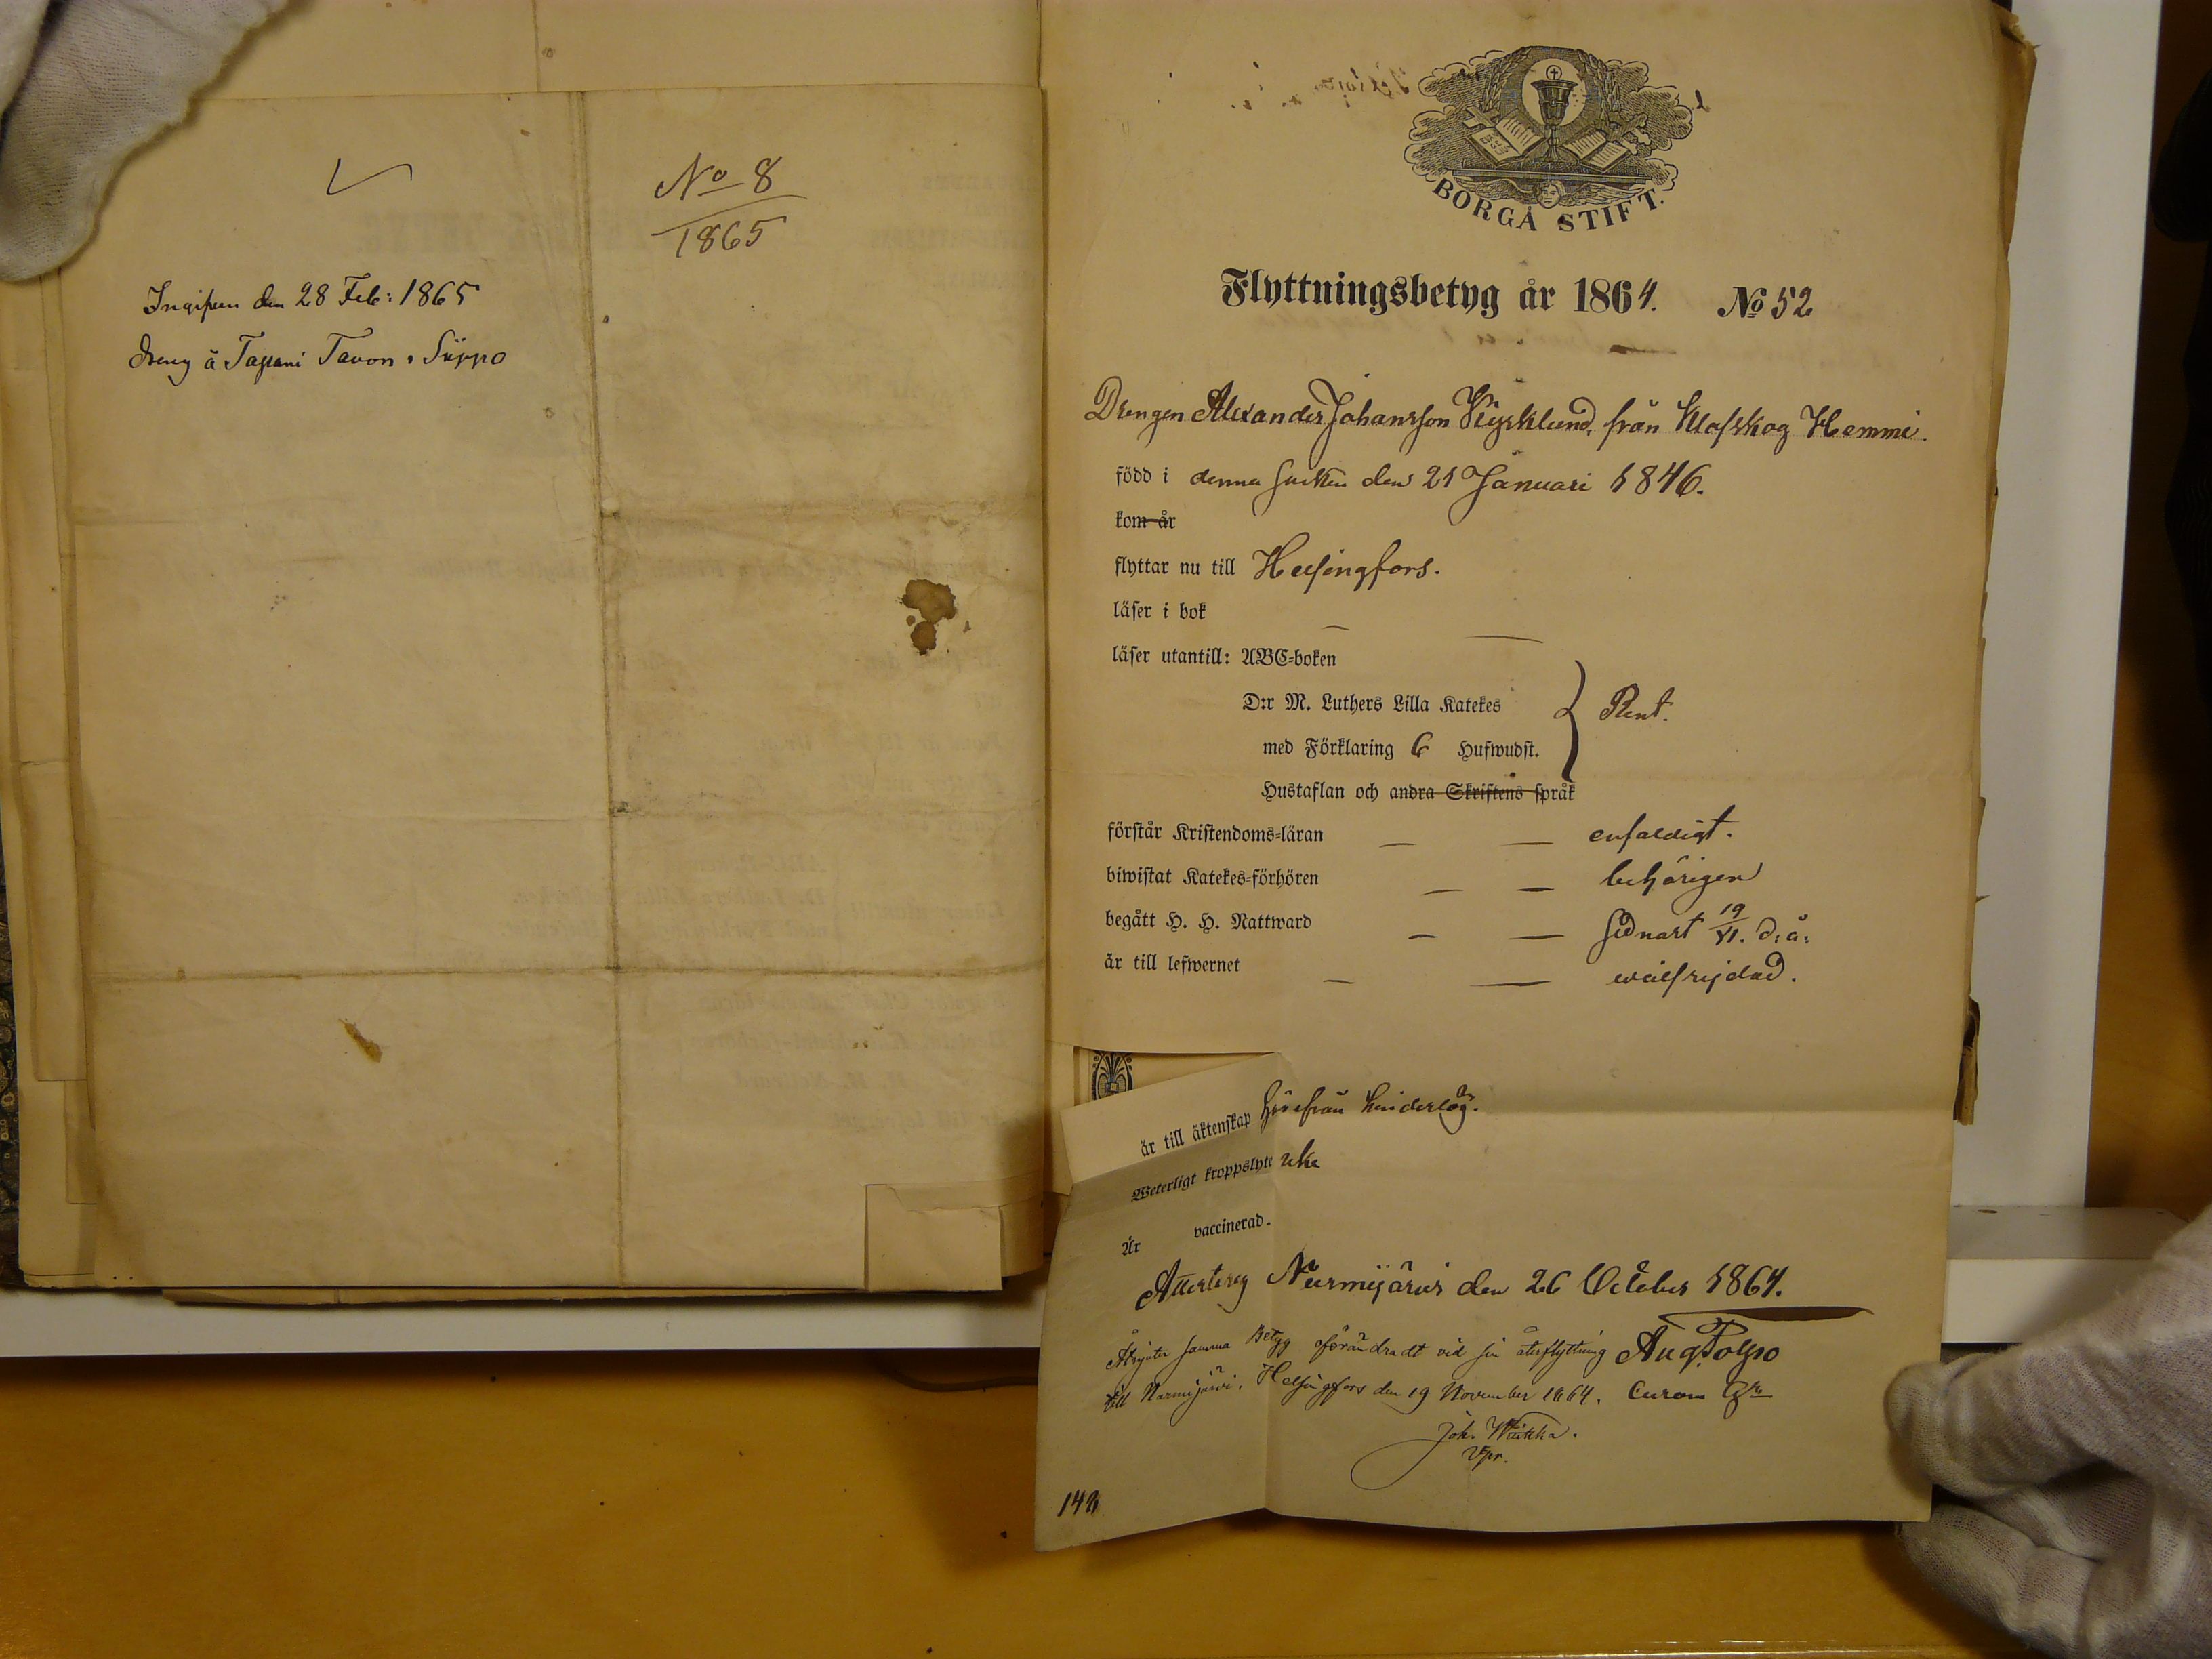 No 8
1865
Ingifven den 28 Feb: 1865
dreng å Tapani Tavon, Sippo
BORGÅ STIFT.
Flyttningsbetyg år 1864. No 52
Drengen Alexander Johansson Wegklund, från Klofskog Hemmi.
född i denna socken den 21 Januari 1846.
kom år
flyttar nu till Helsingfors.
läser i bok
läser utantill: ABC-boken
D:r M. Luthers Lilla Katekes
med Förklaring 6 Hufwudst.
Rent.
Hustaflan och andra Skriftens språk
förstår Kristendoms-läran — — enfaldigt.
biwistat Katekes-förhören — — behörigen
begått H. H. Nattward — — sednast 19/VI. d: å:
är till lefwernet — — wälfrejdad.
är till äktenskap härifrån hinderlög.
Weterligt kroppslyte icke
Är vaccinerad.
Attesterag Nurmijärvi den 26 October 1864.
Åtnjuter samma Betyg oförändradt vid sin återflyttning Aug Polpo
till Nurmijärvi. Helsingfors den 19 November 1864.
Joh. Wiikka.
Vpr.
142